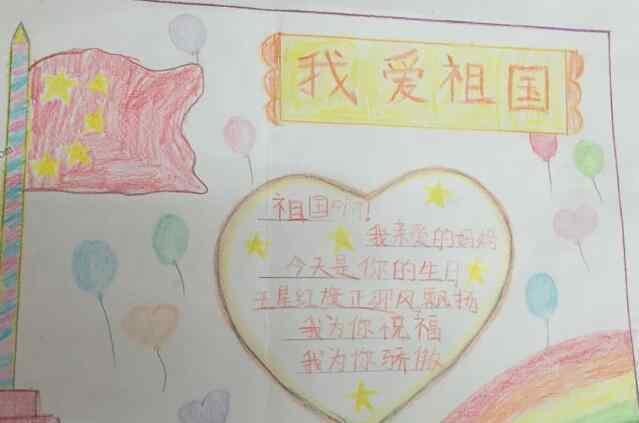 我爱祖国
祖国啊!
我亲爱的妈妈
今天是你的生日
五星红旗正迎风飘扬
我为你祝福
我为你骄傲